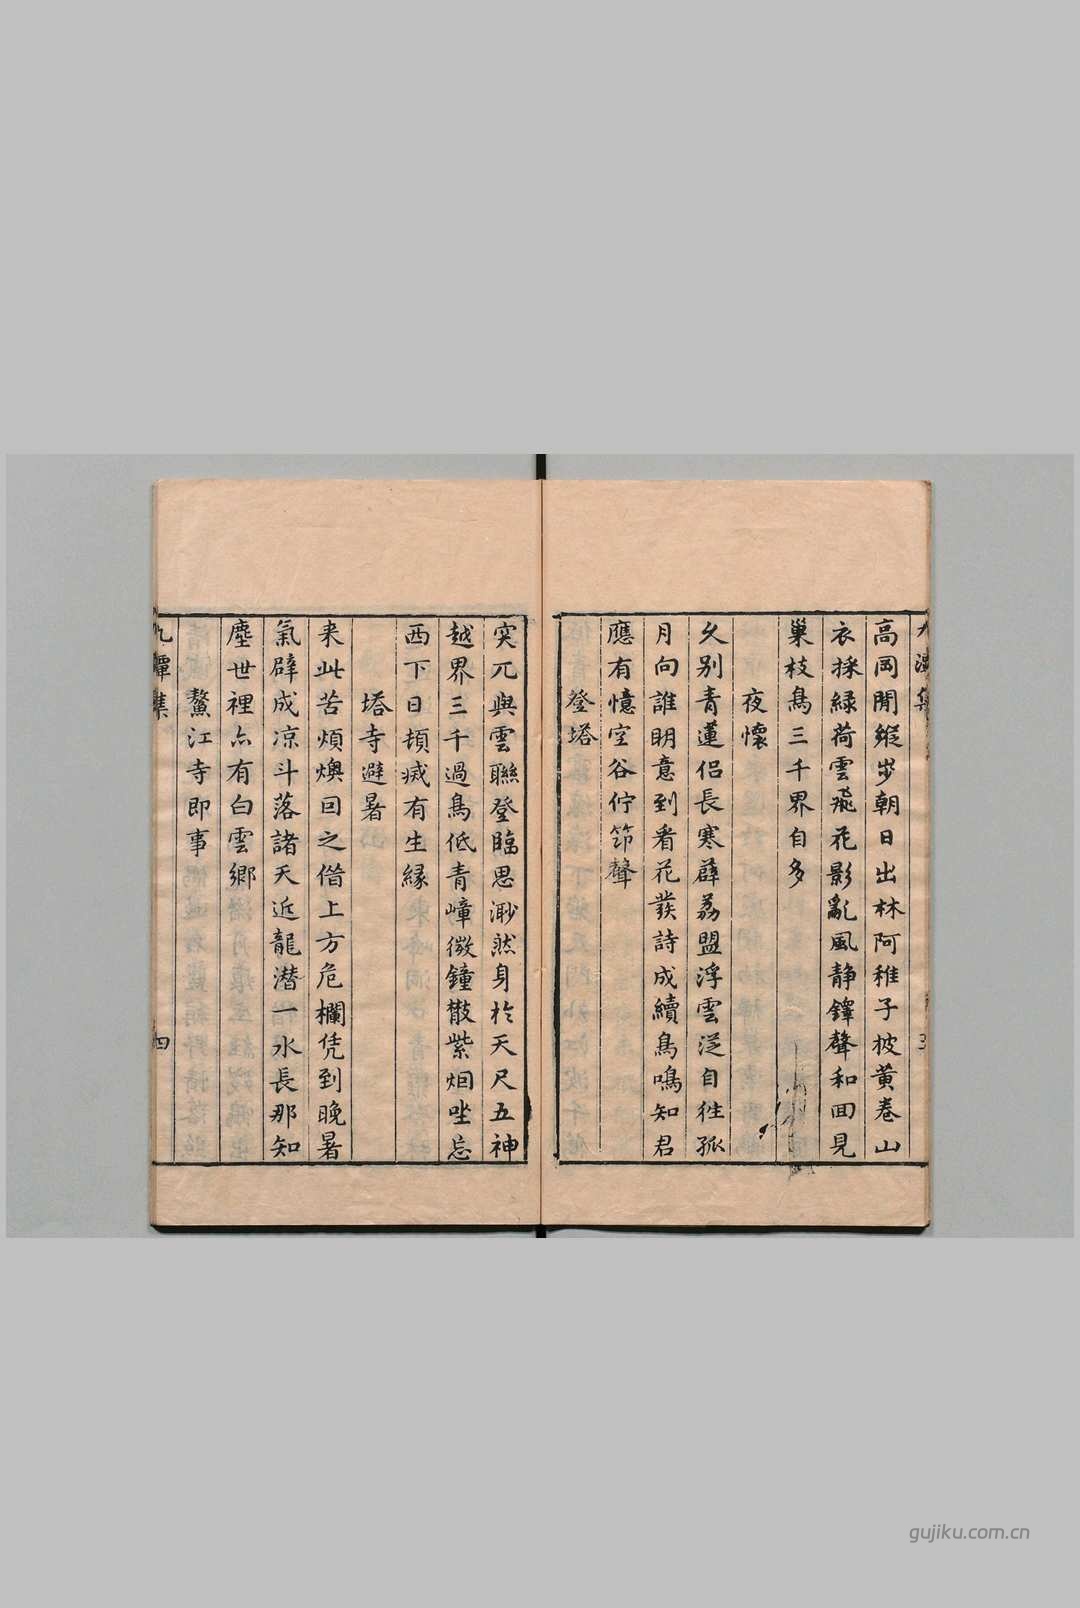 高岡閒縱步朝日出林阿稚子披黃卷山
衣採緑荷雲飛花影亂風静鐸聲和回見
巢枝鳥三千界自多
夜懷
久別青蓮侣長寒薜荔盟浮雲泛自往孤
月向誰明意到看花發詩成續鳥鳴知君
應有憶空谷佇筇聲
登塔
突兀與雲聯登臨思渺然身於天尺五神
越界三千過鳥低青嶂微鐘散紫烟坐忘
西下日頓威有生縁
塔寺避暑
来此苦煩燠回之偕上方危欄凭到晚暑
氣辟成凉斗落諸天近龍潜一水長那知
塵世裡亦有白雲鄉
鰲江寺即事
九潭集
四
gujiku.com.cn